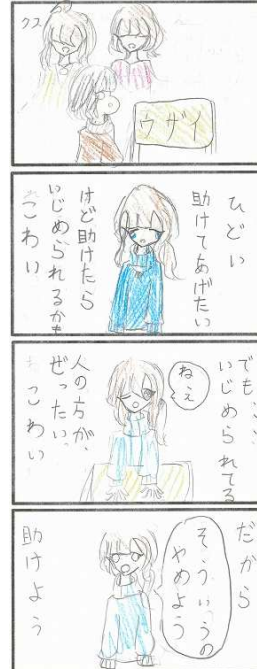 クス
ウザイ
ひどい
助けてあげたい
けど助けたら
いじめられるかも
こわい
でも、、
いじめられてる
ねぇ
人の方が、
ぜったい、
こわい
だから
そういうの
やめよう
助けよう